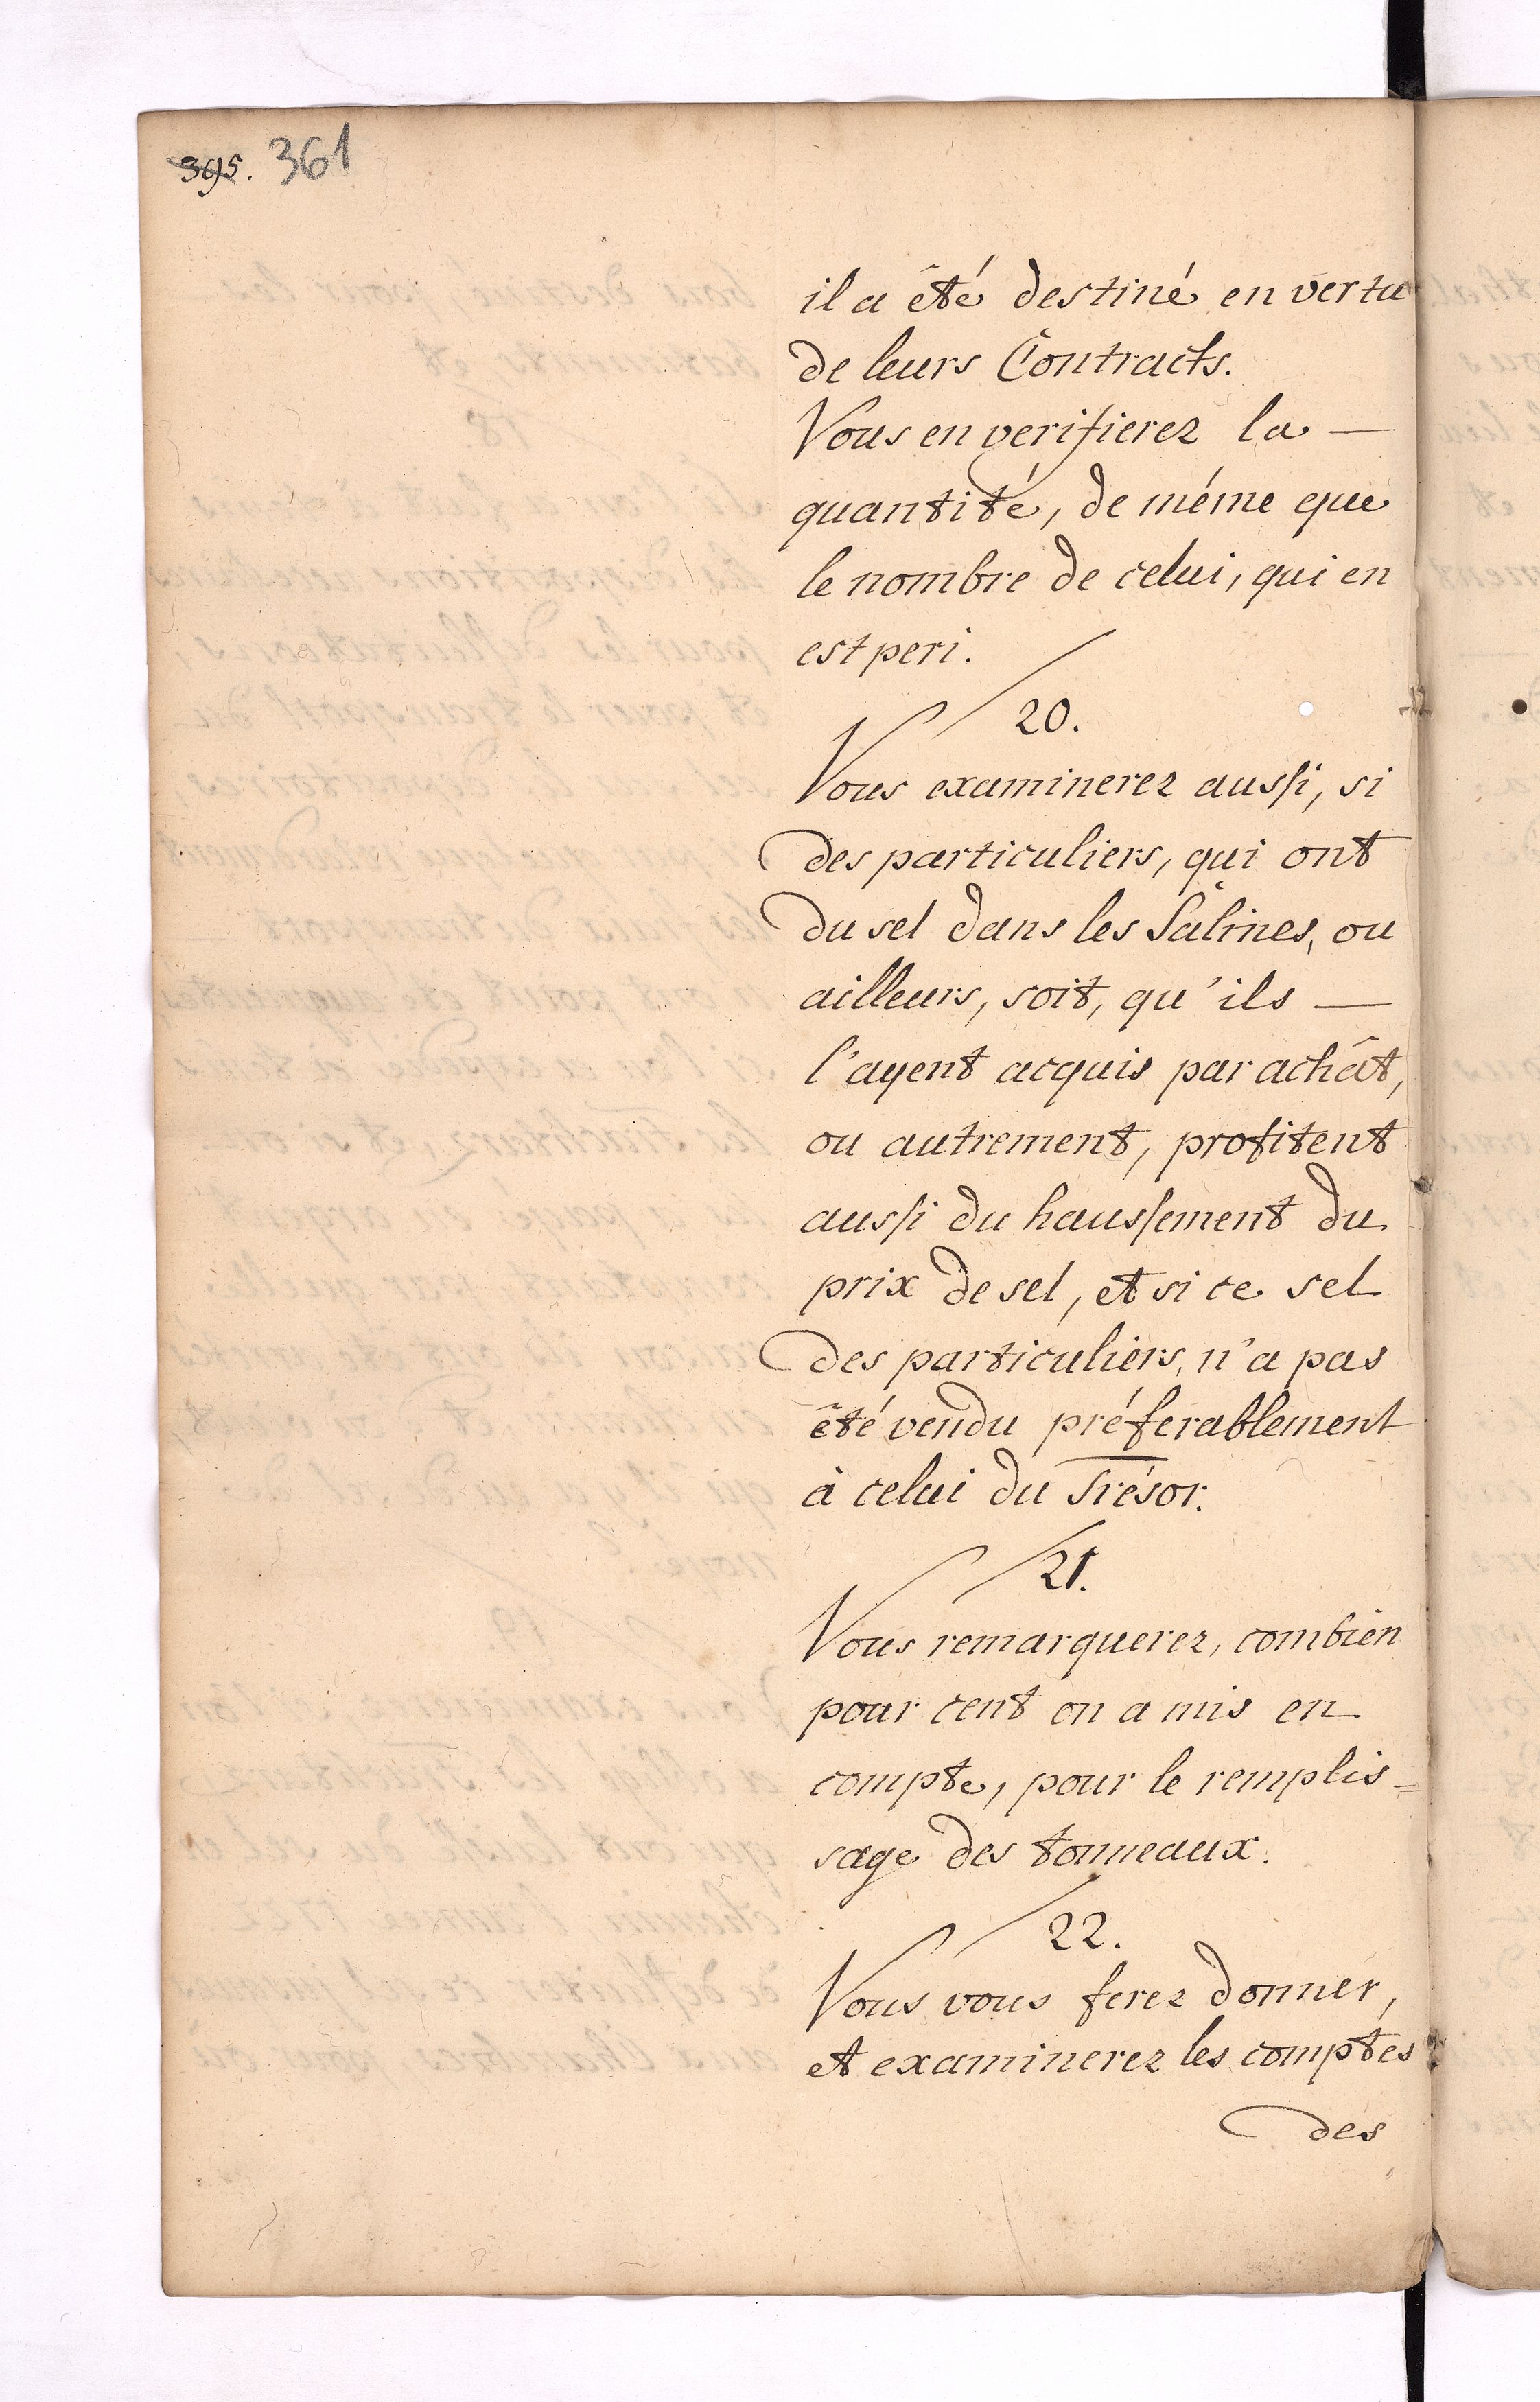 395. 361
il a êté destiné en vertu
de leurs Contracts.
Vous en verifierez la —
quantité, de méme que
le nombre de celui, qui en
est peri.
20.
Vous examinerez aussi, si
des particuliers, qui ont
du sel dans les Salines, ou
ailleurs, soit, qu'ils —
l'ayent acquis par achât,
ou autrement, profitent
aussi du haussement du
prix de sel, et si ce sel
des particuliers, n'a pas
êté vendu préferablement
à celui du Trésor.
21.
Vous remarquerez, combien
pour cent on a mis en
compte, pour le remplis=
sage des tonneaux.
22.
Vous vous ferez donner,
et examinerez les comptes
des